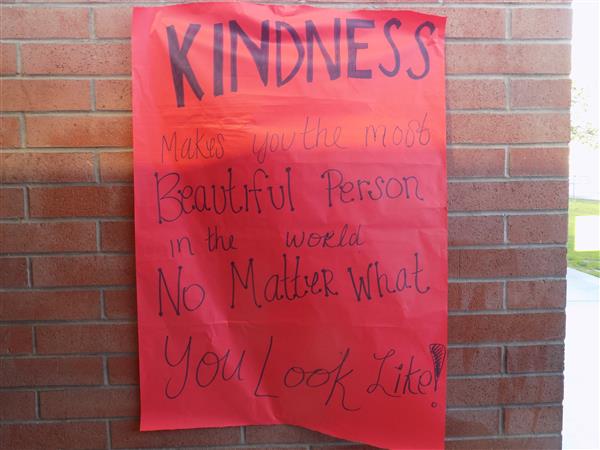 KINDNESS
Makes you the most
Beautiful Person
in the world
No Matter What
You Look Like!